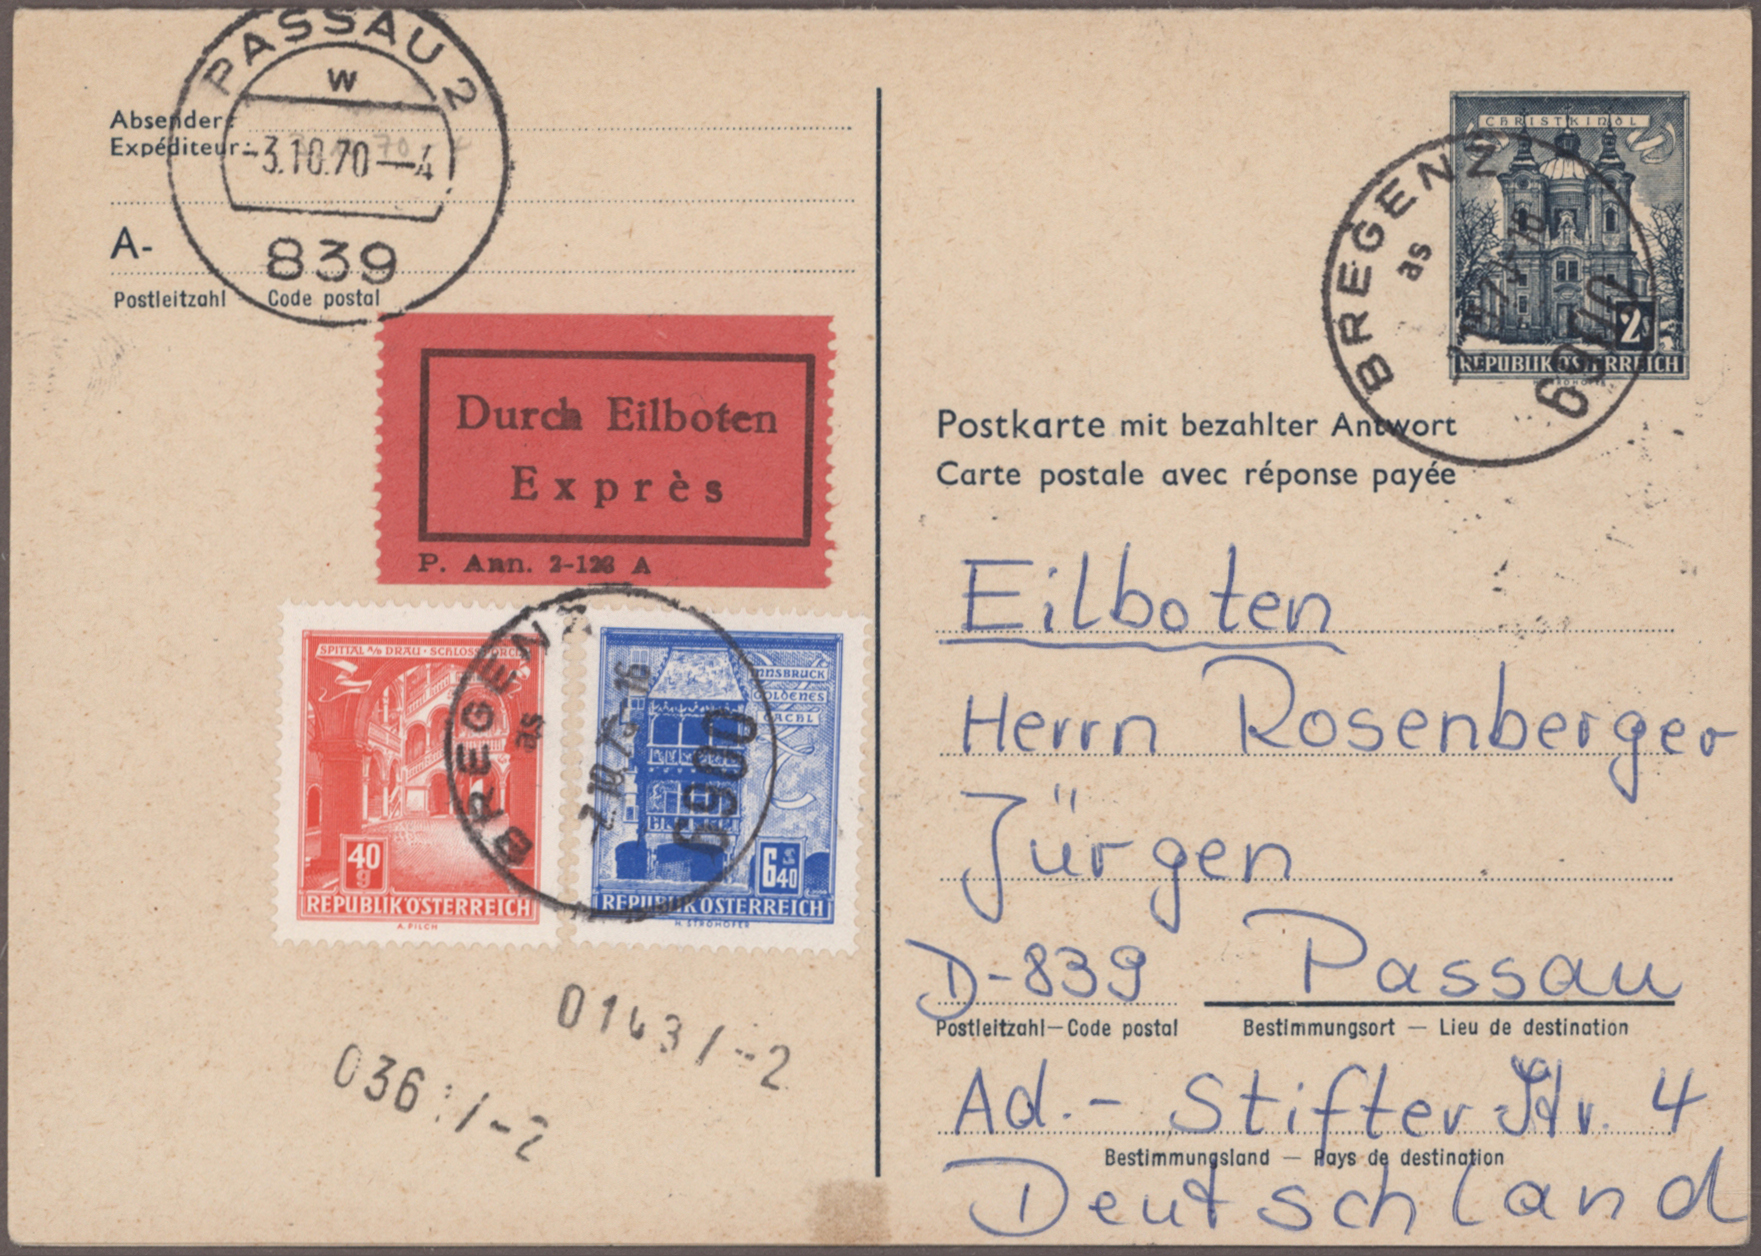 PASSAU 2
w
-3.10.70-4
839
Absender:
Expéditeur:
A-
Postleitzahl Code postal
Durch Eilboten
Exprès
P. Ann. 2-128 A
SPITTAL A/D DRAU · SCHLOSS PORCIA
40
g
REPUBLIK ÖSTERREICH
A. PILCH
INNSBRUCK
GOLDENES
DACHL
6 S 40
REPUBLIK ÖSTERREICH
H. STROHOFER
BREGENZ
as
6900
0143/-2
036 /-2
CHRISTKINDL
2 S
REPUBLIK ÖSTERREICH
BREGENZ
as
6900
Postkarte mit bezahlter Antwort
Carte postale avec réponse payée
Eilboten
Herrn Rosenberger
Jürgen
D-839 Passau
Postleitzahl—Code postal Bestimmungsort — Lieu de destination
Ad.- Stifter Str. 4
Bestimmungsland — Pays de destination
Deutschland